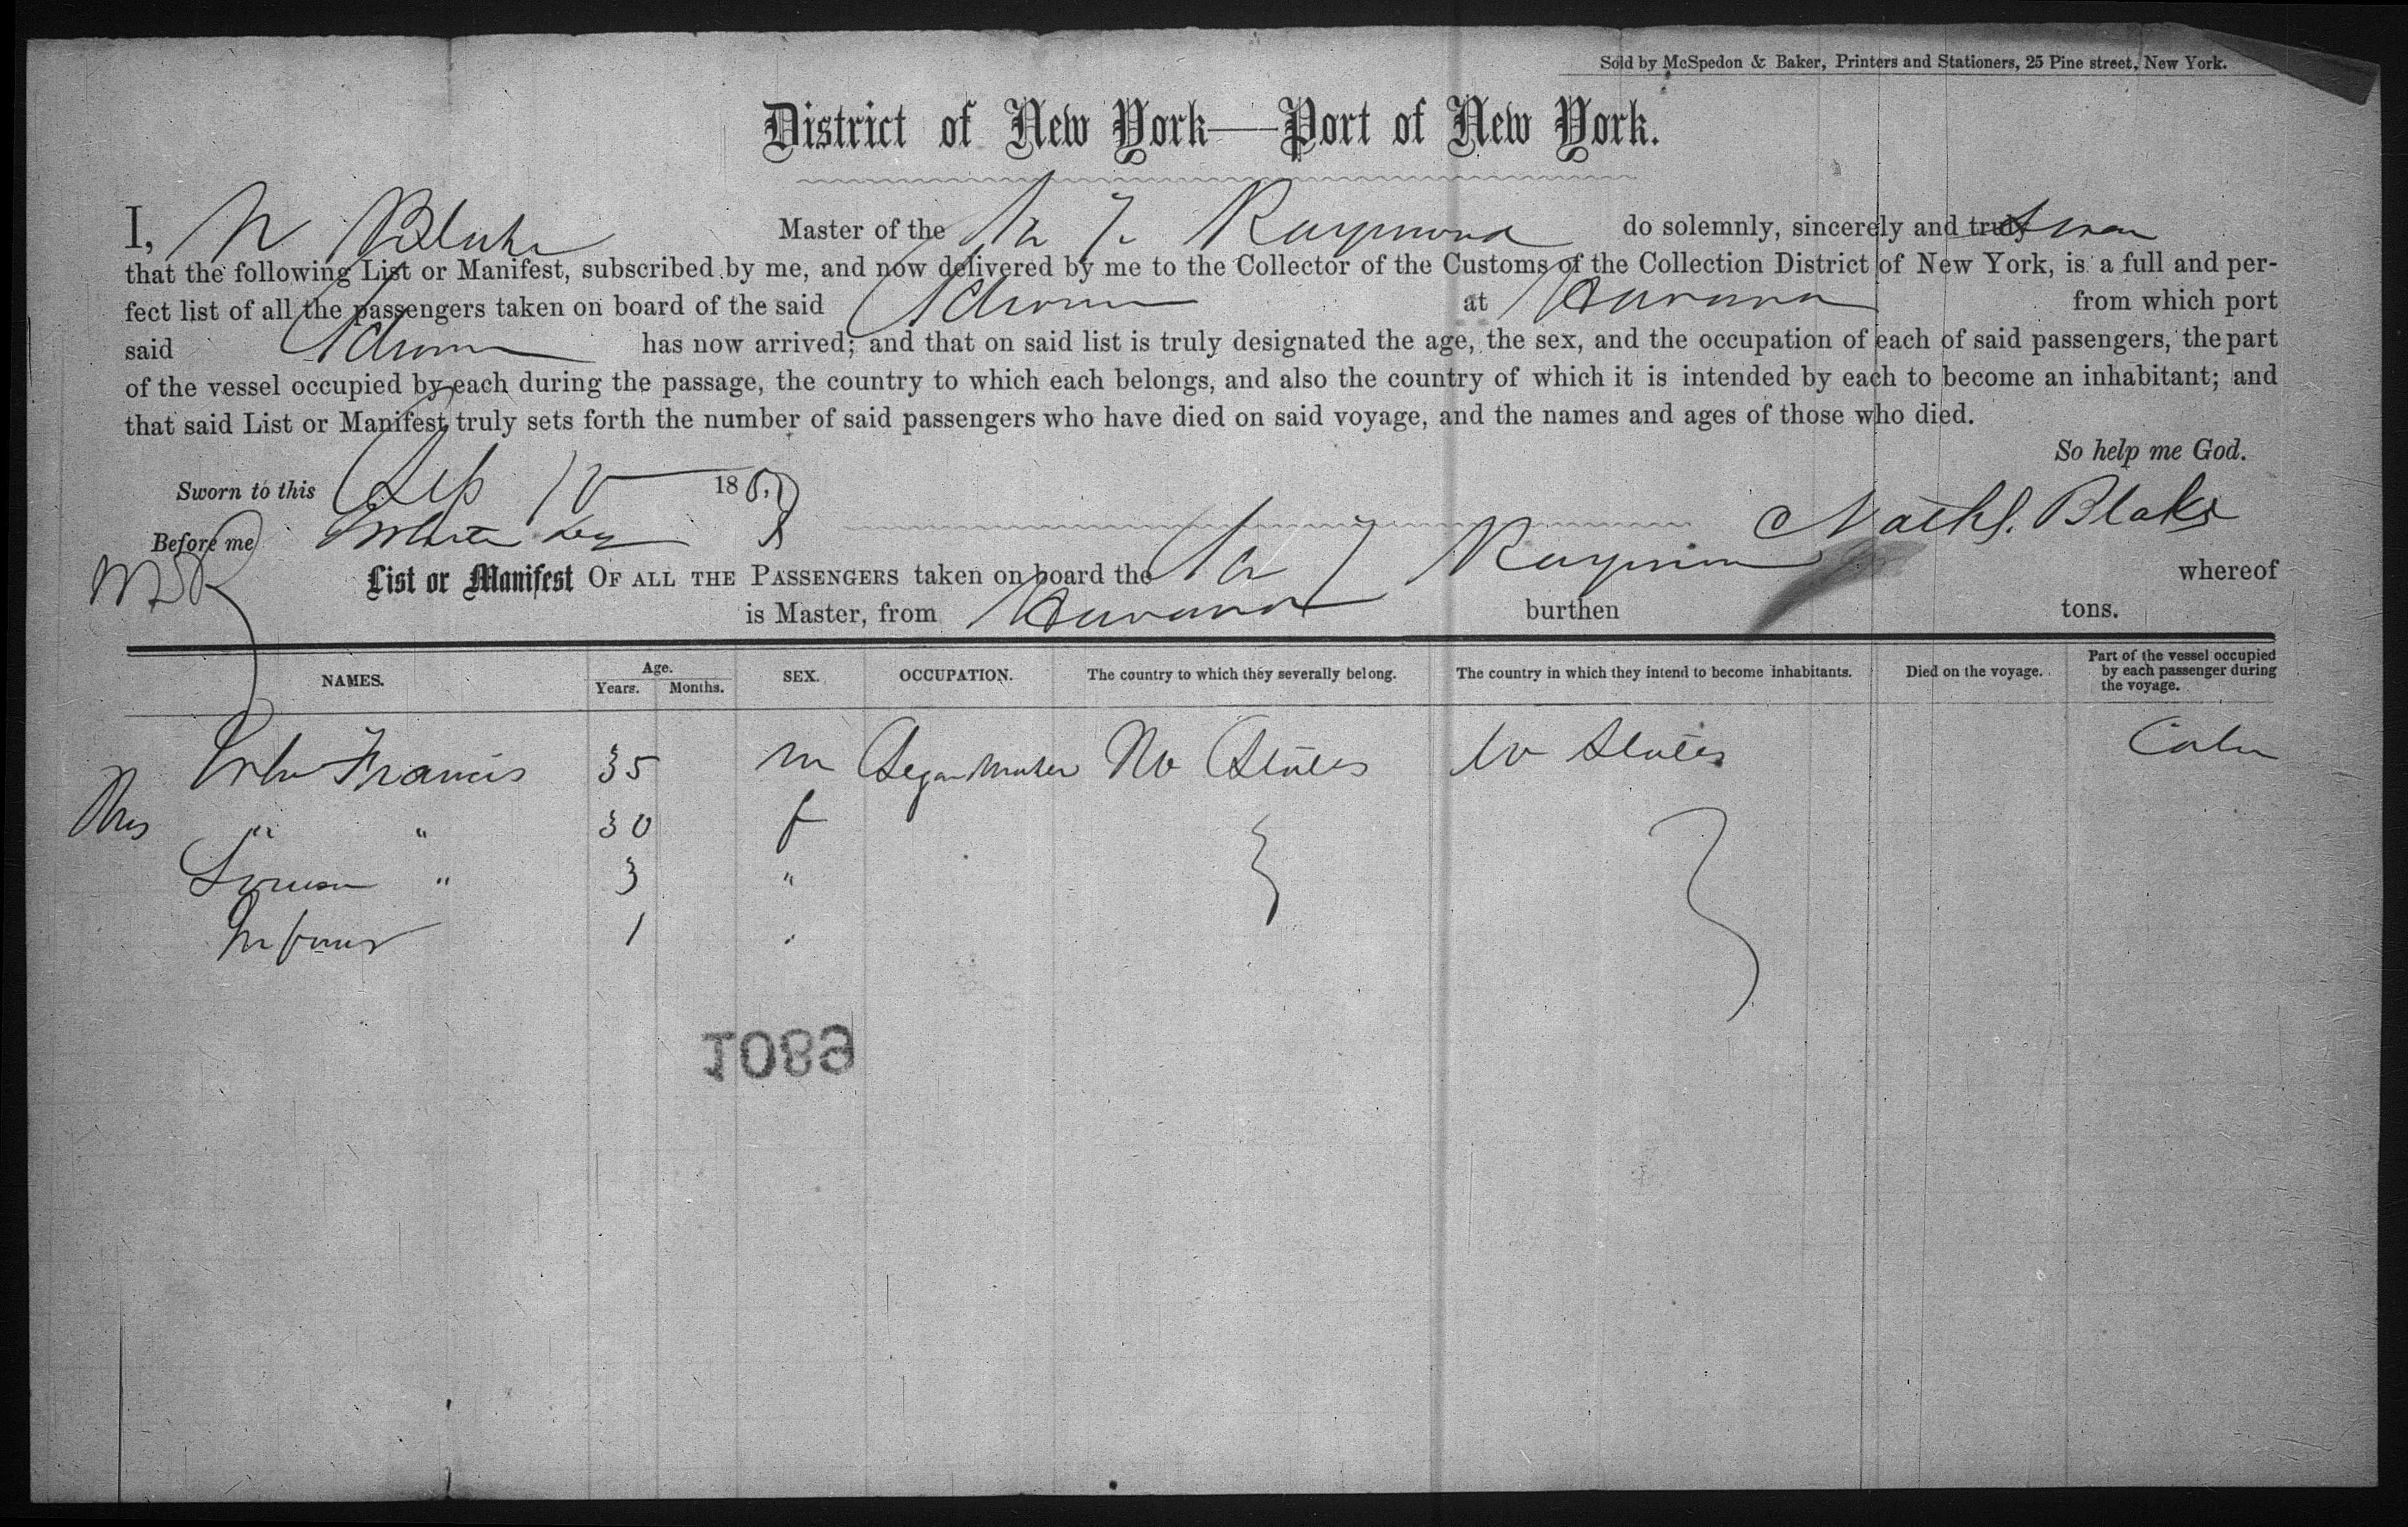 Sold by McSpedon & Baker, Printers and Stationers, 25 Pine street, New York.
District of New York—Port of New York.
I, N Blake Master of the Raymond do solemnly, sincerely and truly swear
that the following List or Manifest, subscribed by me, and now delivered by me to the Collector of the Customs of the Collection District of New York, is a full and per-
fect list of all the passengers taken on board of the said Schooner at Havana from which port
said Schooner has now arrived; and that on said list is truly designated the age, the sex, and the occupation of each of said passengers, the part
of the vessel occupied by each during the passage, the country to which each belongs, and also the country of which it is intended by each to become an inhabitant; and
that said List or Manifest truly sets forth the number of said passengers who have died on said voyage, and the names and ages of those who died.
So help me God.
Sworn to this Sep 18
Before me Nathl. Blake
List or Manifest OF ALL THE PASSENGERS taken on board the Raymond whereof
is Master, from Havana burthen tons.
NAMES. Age. Years. Months. SEX. OCCUPATION. The country to which they severally belong. The country in which they intend to become inhabitants. Died on the voyage. Part of the vessel occupied by each passenger during the voyage.
Francis 35 m Segar Maker States States Cabin
Mrs " " 30 f
Louisa " 3 "
Infant 1
1089